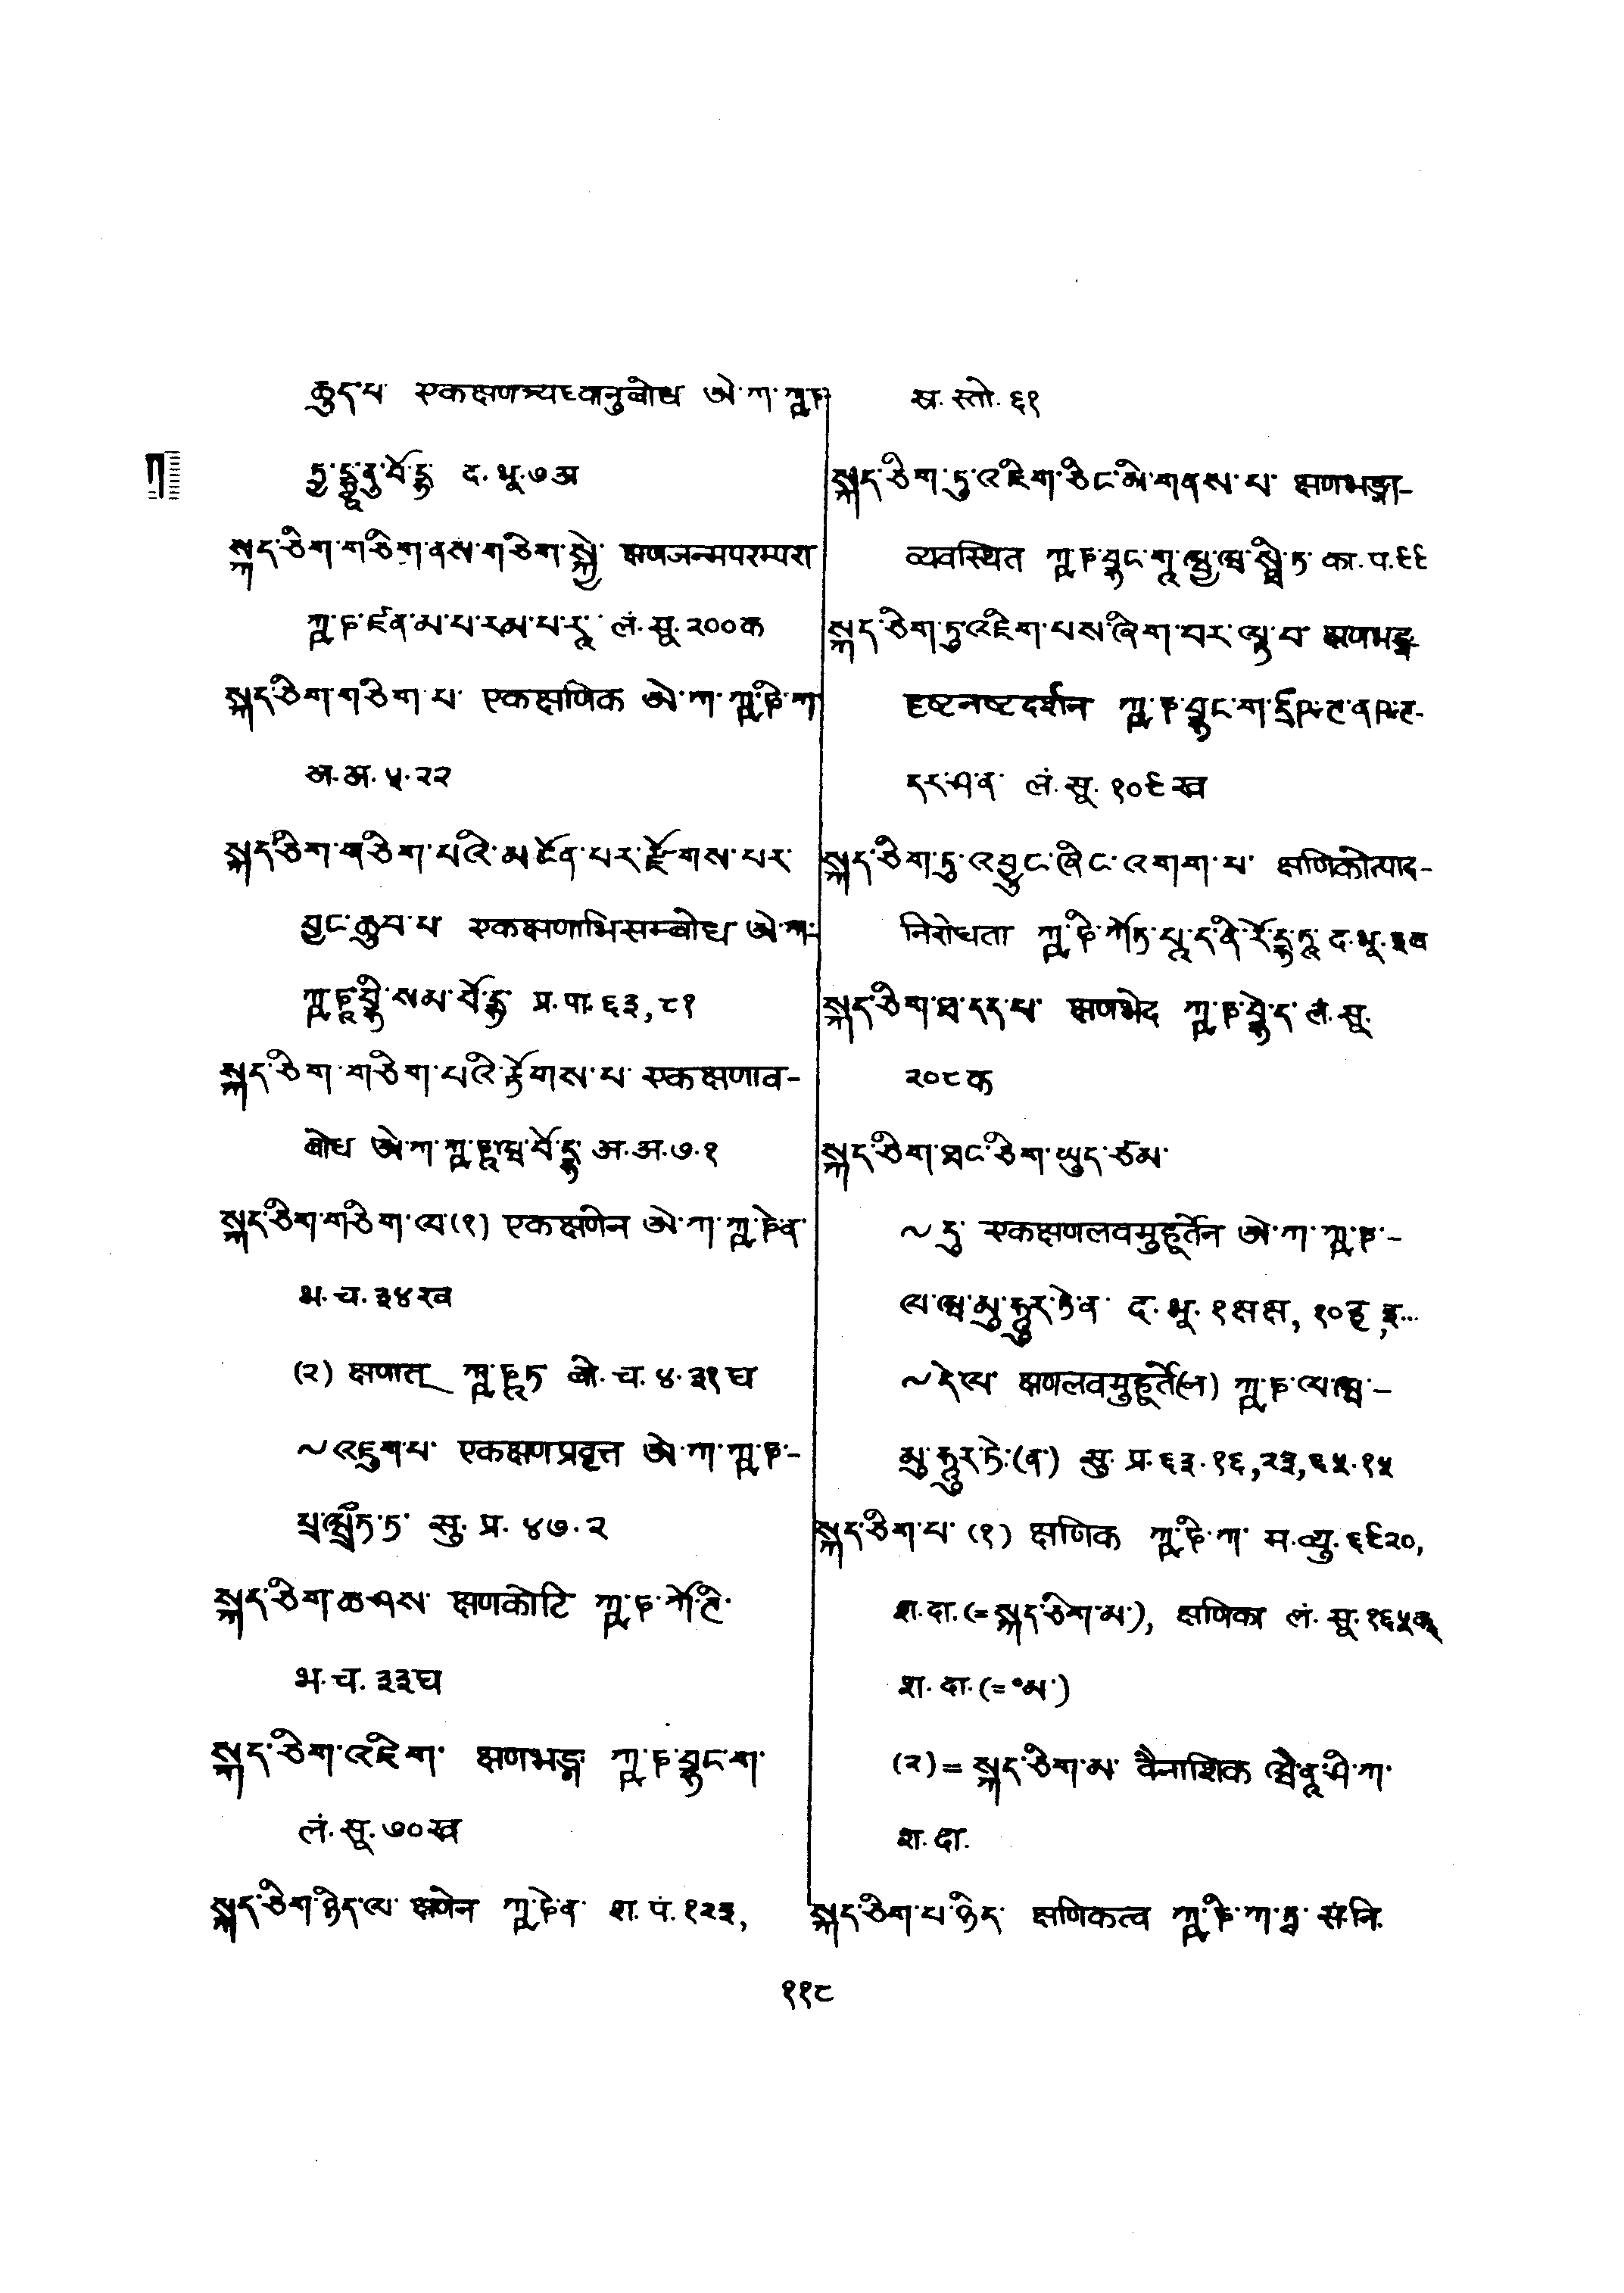 ཆུད་པ་ एकक्षणत्र्यध्वानुबोध ཨེ་ཀ་ཀྵ་ཎ་
ཏྱ་དྷྭཱ་ནུ་བོ་དྷ་ द. भू. ७अ
སྐད་ཅིག་གཅིག་ནས་གཅིག་སྐྱེ་ क्षणजन्मपरम्परा
ཀྵ་ཎ་ཛནྨ་པ་རམ་པ་རཱ་ लं. सू. २००क
སྐད་ཅིག་གཅིག་པ་ एकक्षणिक ཨེ་ཀ་ཀྵ་ཎི་ཀ་
अ. अ. ५. २२
སྐད་ཅིག་གཅིག་པའི་མངོན་པར་རྫོགས་པར་
བྱང་ཆུབ་པ་ एकक्षणाभिसम्बोध ཨེ་ཀ་-
ཀྵ་ཎཱ་བྷི་སམ་བོ་དྷ་ प्र. पा. ६३, ८१
སྐད་ཅིག་གཅིག་པའི་རྟོགས་པ་ एकक्षणाव-
बोध ཨེ་ཀ་ཀྵ་ཎཱ་ཝ་བོ་དྷ་ अ. अ. ७. १
སྐད་ཅིག་གཅིག་ལ་ (१) एकक्षणेन ཨེ་ཀ་ཀྵ་ཎེ་ན་
भ. च. ३४ख
(२) क्षणात् ཀྵ་ཎཱཏ बो. च. ४. ३१घ
~འཇུག་པ་ एकक्षणप्रवृत्त ཨེ་ཀ་ཀྵ་ཎ་-
པྲ་ཝྲྀཏ་ཏ་ सु. प्र. ४७. २
སྐད་ཅིག་ཆ་ཤས་ क्षणकोटि ཀྵ་ཎ་ཀོ་ཊི་
भ. च. ३३घ
སྐད་ཅིག་འཇིག་ क्षणभङ्ग ཀྵ་ཎ་བྷང་ག་
लं. सू. ७०ख
སྐད་ཅིག་ཉིད་ལ་ क्षणेन ཀྵ་ཎེ་ན་ श. पं. १२३,
स्तो. ६१
སྐད་ཅིག་ཏུ་འཇིག་ཅིང་མི་གནས་པ་ क्षणभङ्गा-
व्यवस्थित ཀྵ་ཎ་བྷང་གཱ་ཝྱ་ཝ་སྠི་ཏ་ का. प. ९९
སྐད་ཅིག་ཏུ་འཇིག་པས་ཞིག་བར་ལྟ་བ་ क्षणभङ्ग-
दृष्टनष्टदर्शन ཀྵ་ཎ་བྷང་ག་དྲྀཥ་ཊ་ནཥ་ཊ-
དར་ཤ་ན་ लं. सू. १०९ख
སྐད་ཅིག་ཏུ་འབྱུང་ཞིང་འགག་པ་ क्षणिकोत्पाद-
निरोधता ཀྵ་ཎི་ཀོཏ་པཱ་ད་ནི་རོ་དྷ་ཏཱ་ द. भू.
སྐད་ཅིག་ཐ་དད་པ་ क्षणभेद ཀྵ་ཎ་བྷེ་ད་ लं. सू.
२०८क
སྐད་ཅིག་ཐང་ཅིག་ཡུད་ཙམ་
~དུ་ एकक्षणलवमुहूर्तेन ཨེ་ཀ་ཀྵ་ཎ་-
ལ་ཝ་མུ་ཧཱུར་ཏེ་ན་ द. भू. १क्षक्ष,
~དེ་ལ་ क्षणलवमुहूर्ते(न) ཀྵ་ཎ་ལ་ཝ་-
མུ་ཧཱུར་ཏེ་(ན་) सु. प्र. ६३. १६, २३, ६५. १५
སྐད་ཅིག་པ་ (१) क्षणिक ཀྵ་ཎི་ཀ་ म. व्यु. ६९२०,
श. दा. (=སྐད་ཅིག་མ་), क्षणिका लं. सू.
श. दा. (=°མ་)
(२) = སྐད་ཅིག་མ་ वैनाशिक ཝཻ་ནཱ་ཤི་ཀ་
श. दा.
སྐད་ཅིག་པ་ཉིད་ क्षणिकत्व ཀྵ་ཎི་ཀ་ཏྭ་ सं. नि.
११८